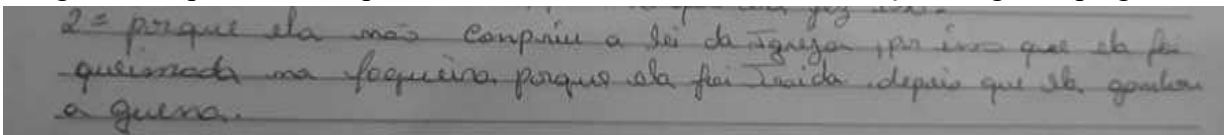 2= porque ela não conpriu a lei da Igreja, por isso que ela foi
queimada na foqueira porque ela foi Traida. depois que ela ganhou
a guerra.